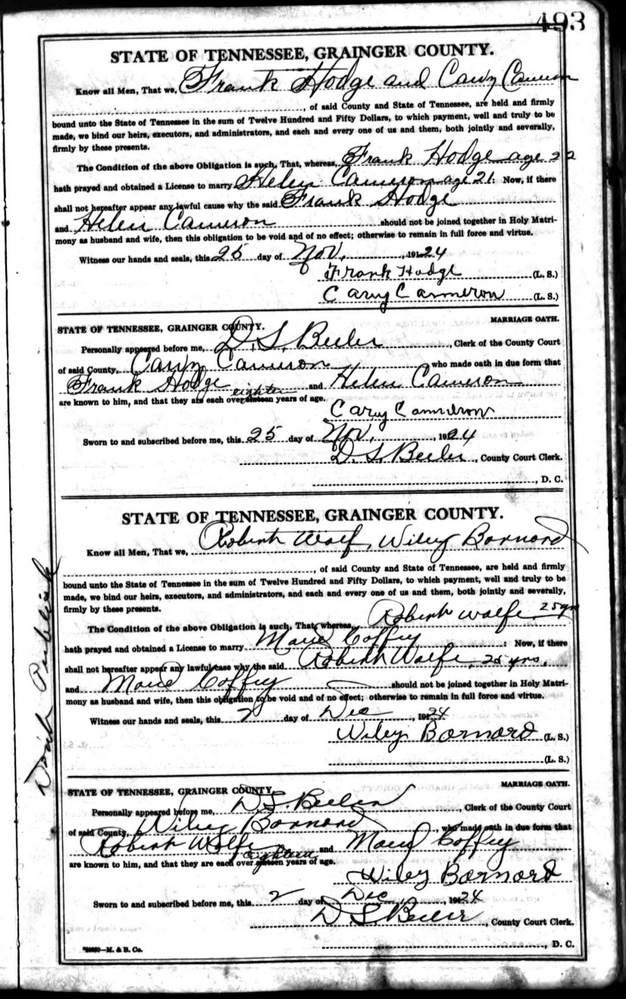 493
STATE OF TENNESSEE, GRAINGER COUNTY.
Know all Men, That we, Frank Hodge and Cary Cameron
, of said County and State of Tennessee, are held and firmly
bound unto the State of Tennessee in the sum of Twelve Hundred and Fifty Dollars, to which payment, well and truly to be
made, we bind our heirs, executors, and administrators, and each and every one of us and them, both jointly and severally,
firmly by these presents.
The Condition of the above Obligation is such, That, whereas, Frank Hodge age 22
hath prayed and obtained a License to marry Helen Cameron age 21: Now, if there
shall not hereafter appear any lawful cause why the said Frank Hodge
and Helen Cameron should not be joined together in Holy Matri-
mony as husband and wife, then this obligation to be void and of no effect; otherwise to remain in full force and virtue.
Witness our hands and seals, this 25 day of Nov, 1924
Frank Hodge (L. S.)
Cary Cameron (L. S.)
MARRIAGE OATH.
STATE OF TENNESSEE, GRAINGER COUNTY.
Personally appeared before me, D. S. Beeler, Clerk of the County Court
of said County, Cary Cameron who made oath in due form that
Frank Hodge and Helen Cameron
eighteen
are known to him, and that they are each over sixteen years of age.
Cary Cameron
Sworn to and subscribed before me, this 25 day of Nov, 1924
D. S. Beeler, County Court Clerk.
, D. C.
STATE OF TENNESSEE, GRAINGER COUNTY.
Know all Men, That we, Robert Wolf, Wiley Barnard
, of said County and State of Tennessee, are held and firmly
bound unto the State of Tennessee in the sum of Twelve Hundred and Fifty Dollars, to which payment, well and truly to be
made, we bind our heirs, executors, and administrators, and each and every one of us and them, both jointly and severally,
firmly by these presents.
The Condition of the above Obligation is such, That, whereas, Robert Wolfe 25 yrs
hath prayed and obtained a License to marry Marie Coffey : Now, if there
shall not hereafter appear any lawful cause why the said Robert Wolfe, 25 yrs
and Marie Coffey should not be joined together in Holy Matri-
mony as husband and wife, then this obligation to be void and of no effect; otherwise to remain in full force and virtue.
Witness our hands and seals, this 2 day of Dec, 1924
Wiley Barnard (L. S.)
(L. S.)
Publish
MARRIAGE OATH.
STATE OF TENNESSEE, GRAINGER COUNTY.
Personally appeared before me, D. S. Beeler, Clerk of the County Court
of said County, Wiley Barnard, who made oath in due form that
Robert Wolfe and Marie Coffey
eighteen
are known to him, and that they are each over sixteen years of age.
Wiley Barnard
Sworn to and subscribed before me, this 2 day of Dec, 1924
D S Beeler, County Court Clerk.
, D. C.
M. & B. Co.